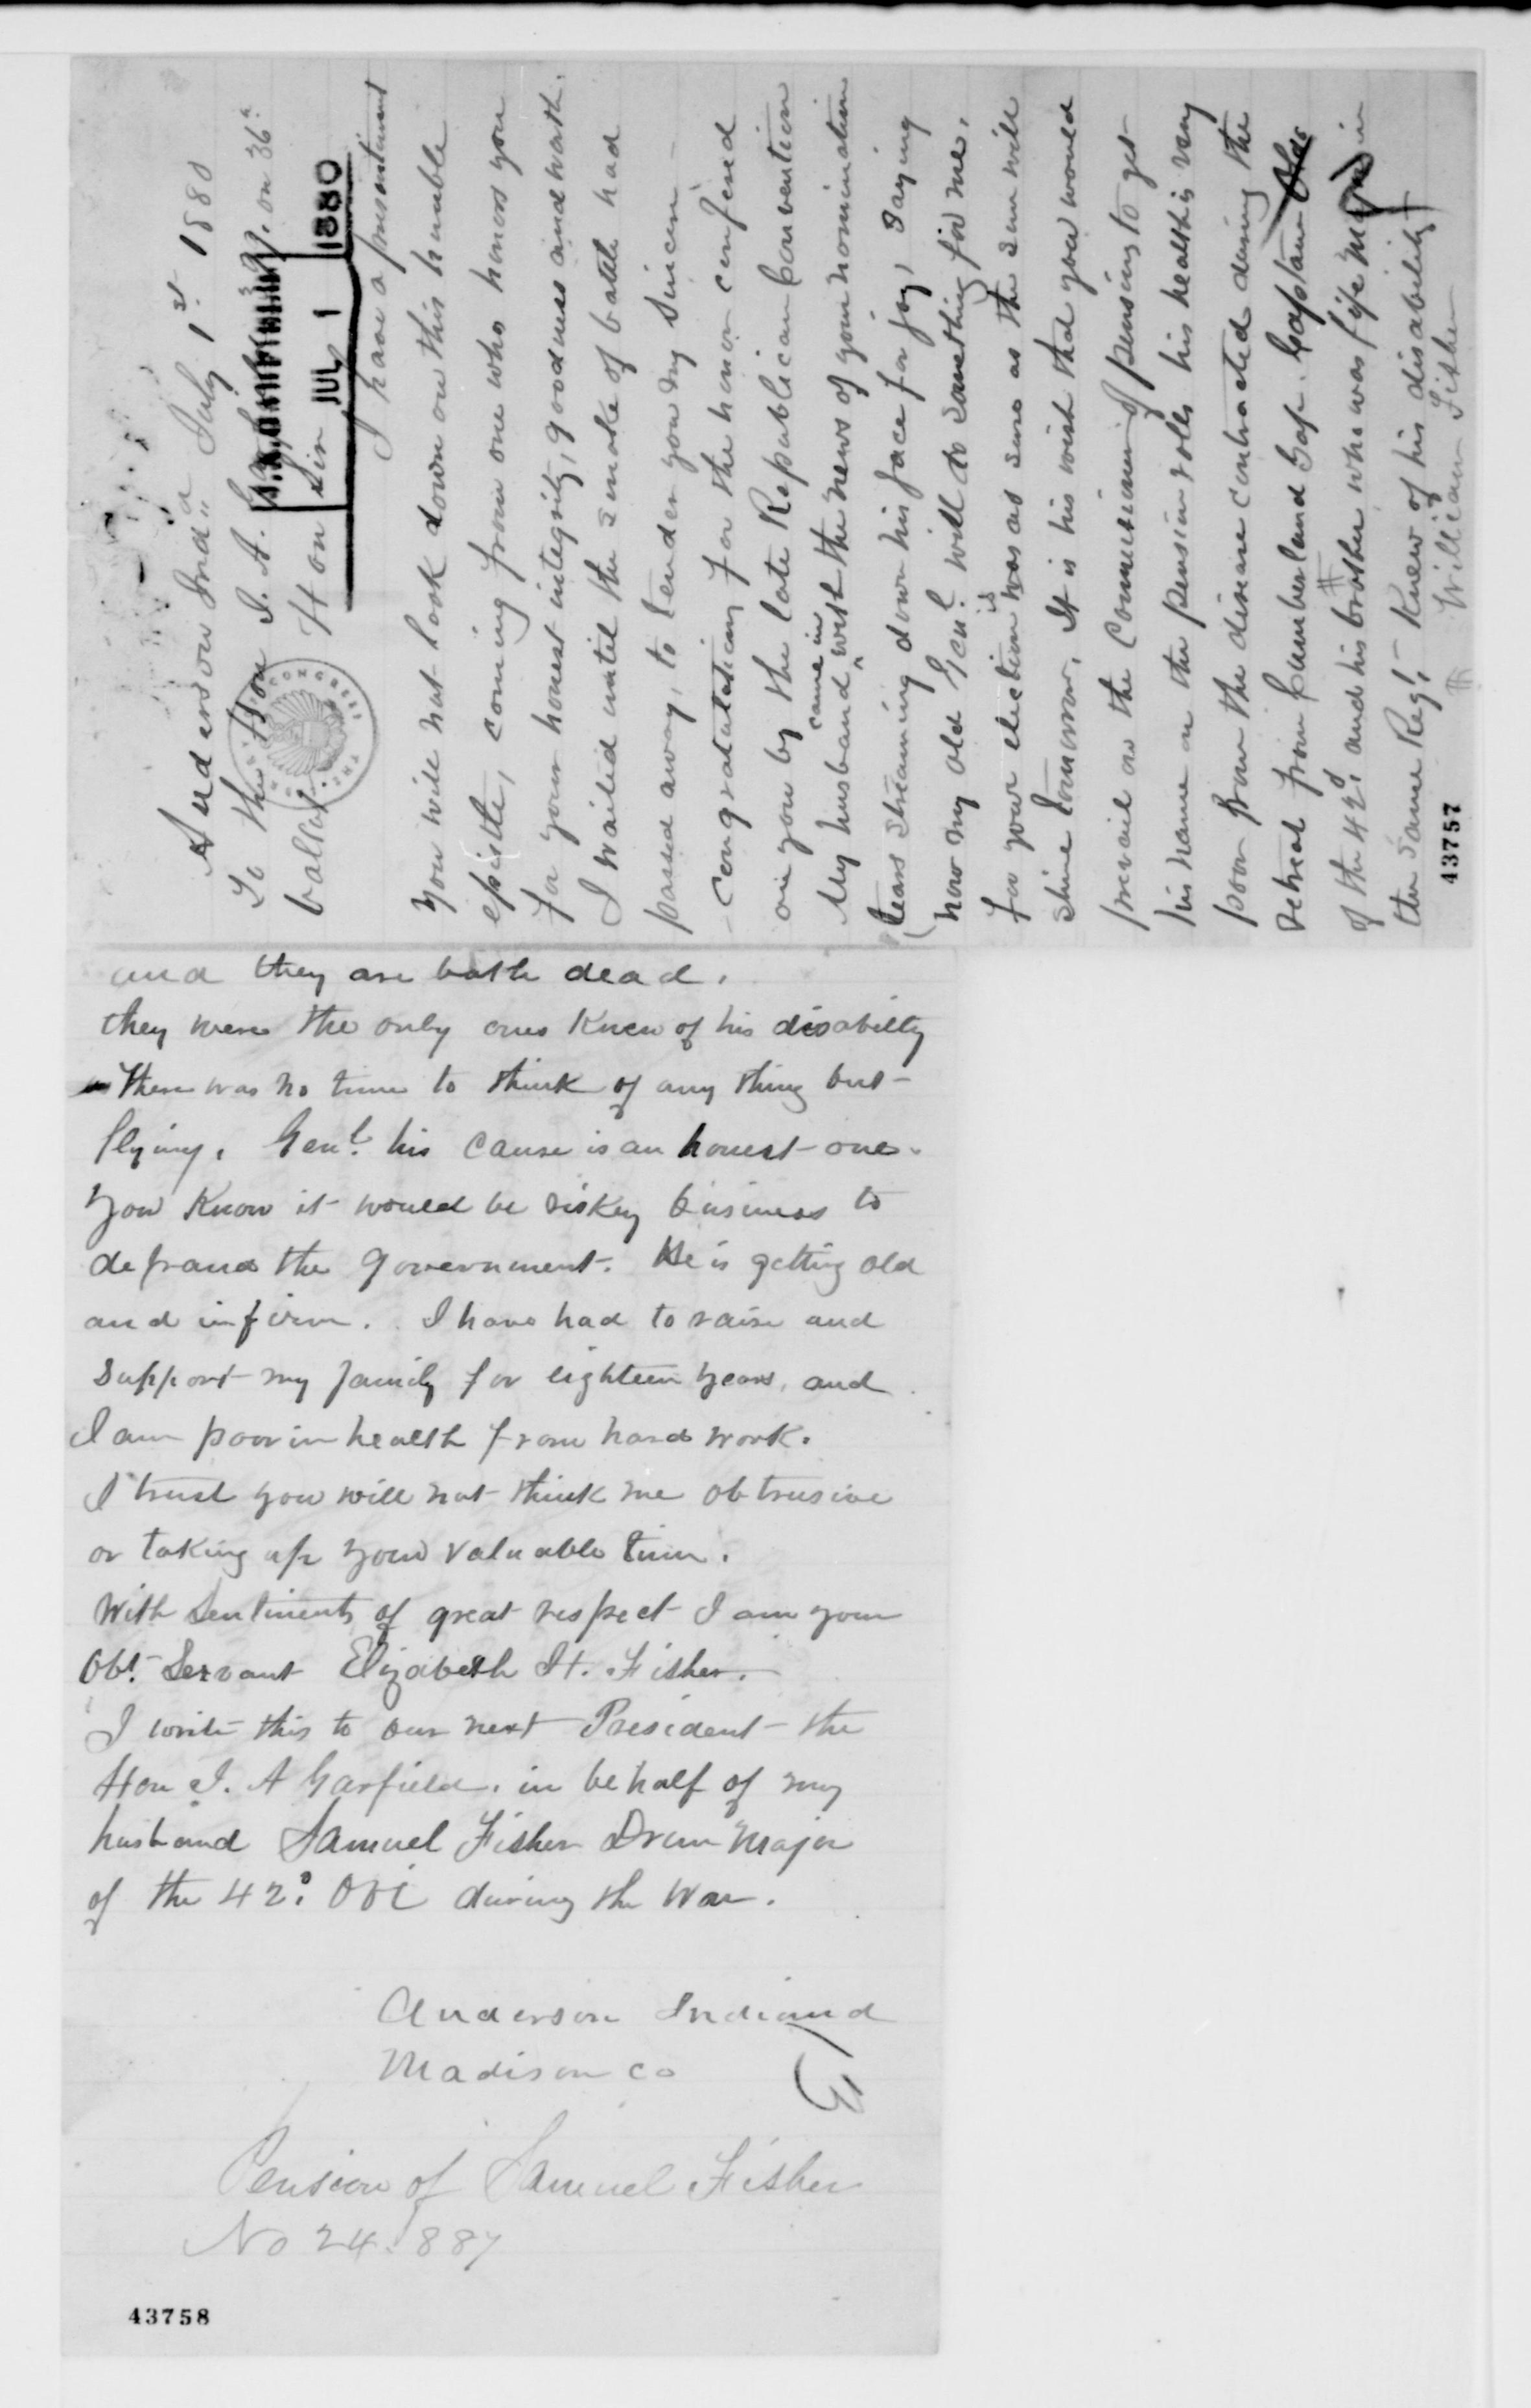 Anderson Inda July 1st 1880
To the Hon J. A. on 36th
ballot. Hon Sir
JUL 1 1880
CONGRESS
I have a presentiment
you will not look down on this humble
epistle, coming from one who honors you
for your honest integrity, goodness and worth.
I waited until the smoke of battle had
passed away, to tender you my sincere
congratulations for the honor confered
on you by the late Republican Convention
My husband came in with the news of your nomination
tears streaming down his face for joy, saying
now my old Genl will do something for me,
for your election is as sure as the sun will
shine tomorrow. It is his wish that you would
prevail on the Commissioner of pensions to get
his name on the pension rolls his health is very
poor from the disease contracted during the
retreat from Cumberland Gap. Captain Olds
of the 42d and his brother who was fife major in
the same Regt knew of his disability
William Fisher
43757
and they are both dead.
they were the only ones knew of his disabilty
There was no time to think of any thing but
flying. Genl. his cause is an honest one.
You know it would be riskey business to
defraud the government. He is getting old
and infirm. I have had to raise and
support my family for eighteen years, and
I am poor in health from hard work.
I trust you will not think me obtrusive
or taking up your valuable time.
With Sentiments of great respect I am your
Obt. Servant Elizabeth H. Fisher.
I write this to our next President the
Hon J. A Garfield. in behalf of my
husband Samuel Fisher Drum Major
of the 42d OVI during the War.
Anderson Indiana
Madison Co
Pension of Samuel Fisher
No 24.887
43758